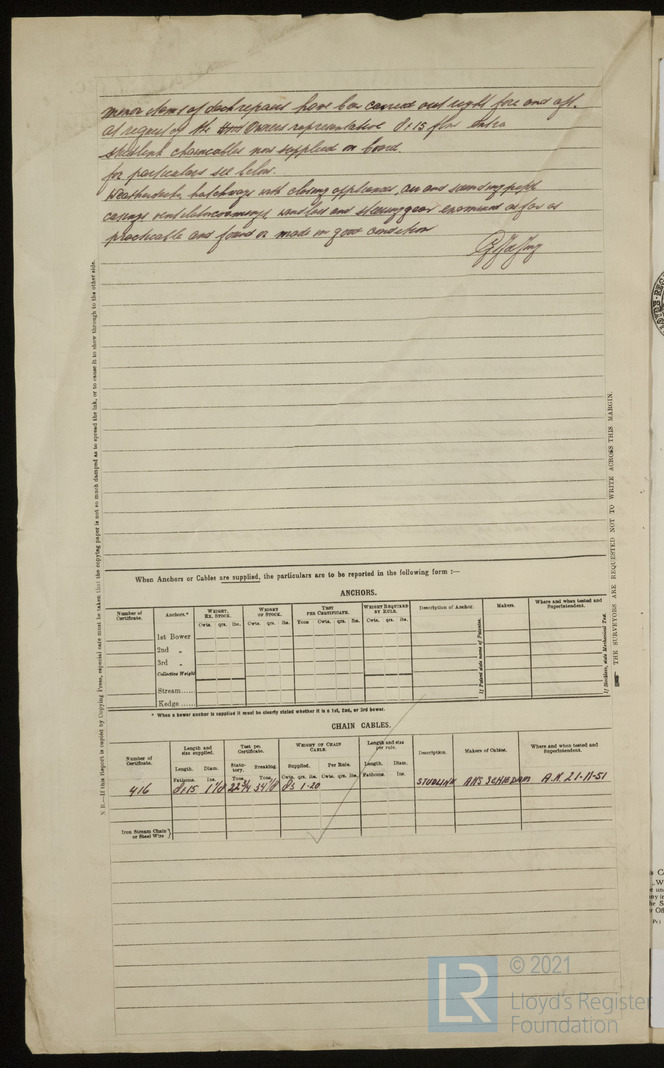 minor items of deck repairs have been carried out right fore and aft.
at request of the Owners representative 2 x 15 fms extra
studlink chaincables now supplied on board
for particulars see below.
Weatherdecks, hatchways with closing appliances, air and sounding pipes
casings ventilatorcoamings, windlass and steeringgear examined as far as
practicable and found or made in good condition
N.B.—If this Report is copied by Copying Press, especial care must be taken that the copying paper is not so much damped as to spread the ink, or to cause it to show through to the other side.
THE SURVEYORS ARE REQUESTED NOT TO WRITE ACROSS THIS MARGIN.
When Anchors or Cables are supplied, the particulars are to be reported in the following form :—
ANCHORS.
Number of Certificate. Anchors.* Weight, Ex. Stock. Weight of Stock. Test per Certificate. Weight Required by Rule. Description of Anchor. Makers. Where and when tested and Superintendent.
Cwts. qrs. lbs. Cwts. qrs. lbs. Tons Cwts. qrs. lbs. Cwts. qrs. lbs.
1st Bower
2nd „
3rd „
Collective Weight
Stream......
Kedge ......
If Patent state name of Patentee.
If Stockless, state Mechanical Test.
* When a bower anchor is supplied it must be clearly stated whether it is a 1st, 2nd, or 3rd bower.
CHAIN CABLES.
Number of Certificate. Length and size supplied. Test per Certificate. Weight of Chain Cable. Length and size per rule. Description. Makers of Cables. Where and when tested and Superintendent.
Length. Diam. Statutory. Breaking. Supplied. Per Rule. Length. Diam.
Fathoms. Ins. Tons. Tons. Cwts. qrs. lbs. Cwts. qrs. lbs. Fathoms. Ins.
416 2x15 STUDLINK SCHIEDAM 21-11-51
Iron Stream Chain or Steel Wire }
© 2021
LR
Lloyd's Register
Foundation